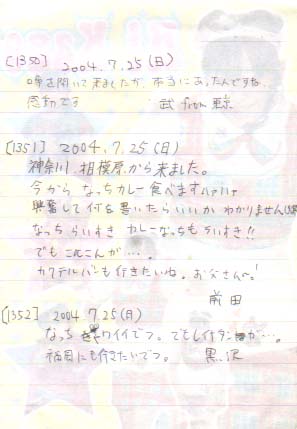 [1350] 2004.7.25(日)
噂を聞いて来ましたが、本当にあったんですね
感動です 武 from 東京
[1351] 2004.7.25(日)
神奈川.相模原から来ました。
今から なっちカレー食べますハァハァ
興奮して何を書いたらいいか わかりません
なっち らいすき カレーなっちも らいすき!!
でも こんこんが…。
カクテルバーも行きたいね。おとうさんへ!
前田
[1352] 2004 7.25(月)
なっち カワイイでつ。でも
福目にも行きたいでつ。 黒沢